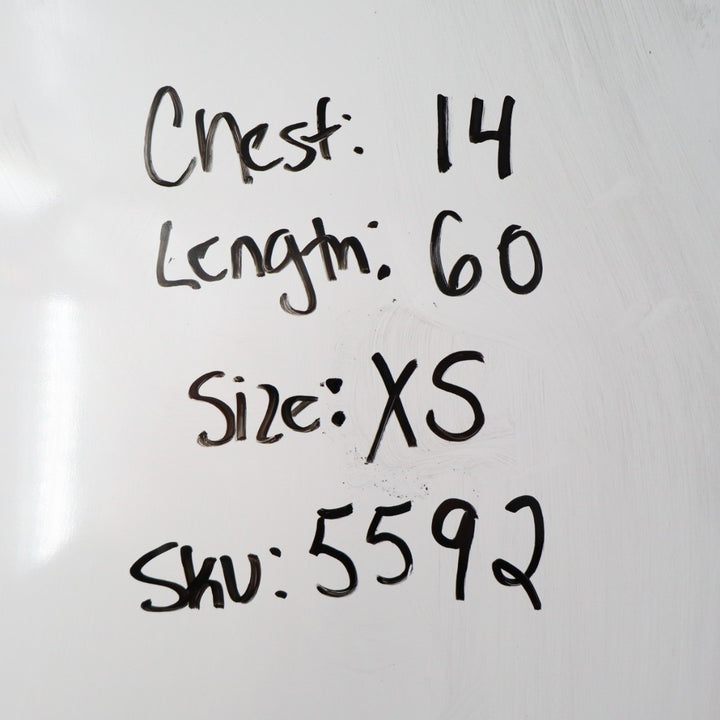 Chest: 14
Length: 60
Size: XS
Sku: 5592